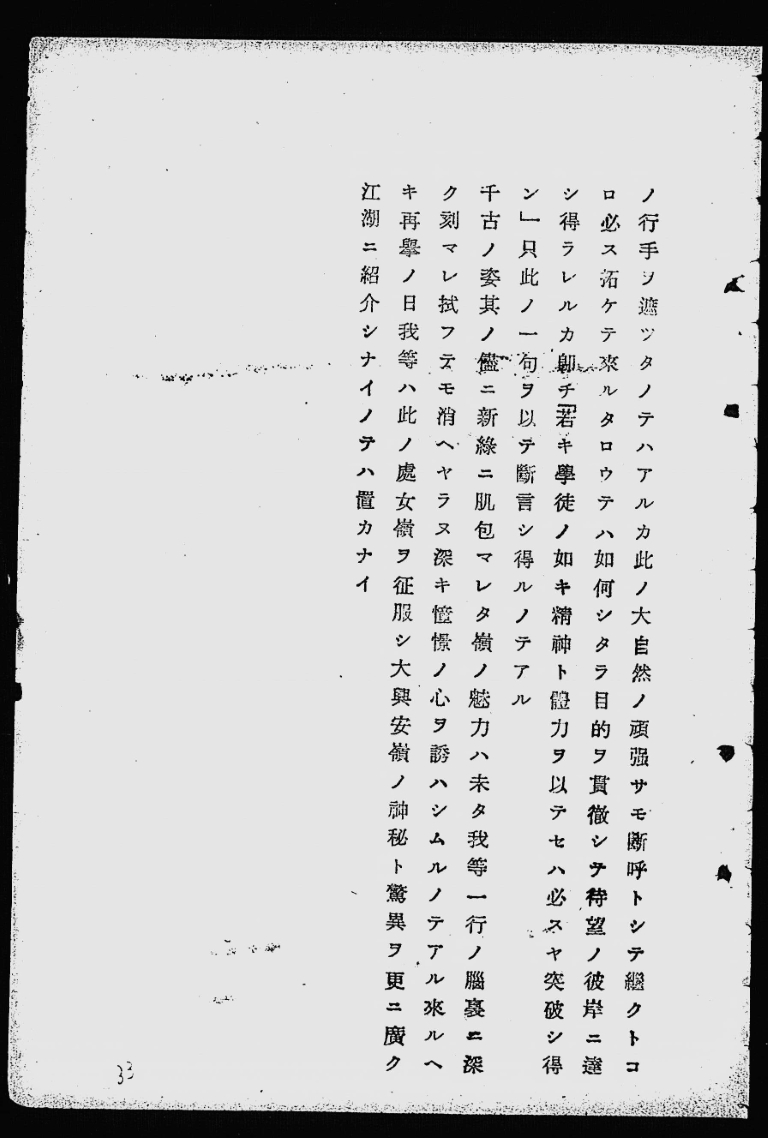 ノ行手ヲ遮ツタノテハアルカ此ノ大自然ノ頑强サモ斷呼トシテ繼クトコ
ロ必ス拓ケテ來ルタロウテハ如何シタラ目的ヲ貫徹シテ待望ノ彼岸ニ達
シ得ラレルカ卽チ「若キ學徒ノ如キ精神ト體力ヲ以テセハ必スヤ突破シ得
ン」只此ノ一句ヲ以テ斷言シ得ルノテアル
千古ノ姿其ノ儘ニ新綠ニ肌包マレタ嶺ノ魅力ハ未タ我等一行ノ腦裏ニ深
ク刻マレ拭フテモ消ヘヤラヌ深キ憧憬ノ心ヲ誘ハシムルノテアル來ルヘ
キ再擧ノ日我等ハ此ノ處女嶺ヲ征服シ大興安嶺ノ神秘ト驚異ヲ更ニ廣ク
江湖ニ紹介シナイノテハ置カナイ
33